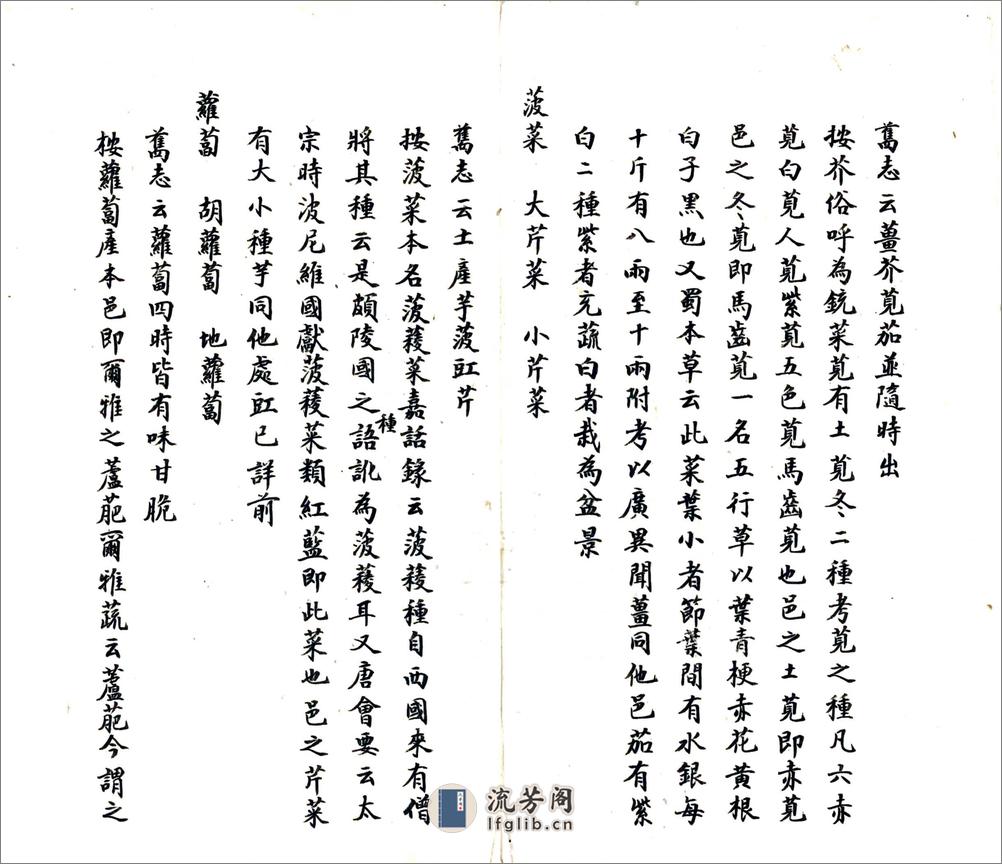 舊志云薑芥莧茄並隨時出
按芥俗呼為銃菜莧有土莧冬二種考莧之種凡六赤
莧白莧人莧紫莧五色莧馬齒莧也邑之土莧即赤莧
邑之冬莧即馬齒莧一名五行草以葉青梗赤花黄根
白子黑也又蜀本草云此菜葉小者節葉間有水銀每
十斤有八兩至十兩附考以廣異聞薑同他邑茄有紫
白二種紫者充蔬白者栽為盆景
菠菜 大芹菜 小芹菜
舊志云土產芋菠豇芹
按菠菜本名菠薐菜嘉話錄云菠薐種自西國來有僧
將其種云是頗陵國之種語訛為菠薐耳又唐會要云太
宗時波尼維國獻菠薐菜類紅藍即此菜也邑之芹菜
有大小種芋同他處豇已詳前
蘿蔔 胡蘿蔔 地蘿蔔
舊志云蘿蔔四時皆有味甘脆
按蘿蔔產本邑即爾雅之蘆萉爾雅蔬云蘆萉今謂之
流芳阁
lfglib.cn